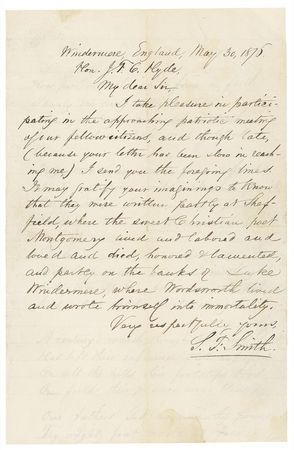 Windermere, England, May 30, 1875
Hon. J. F. C. Hyde,
My dear Sir,
I take pleasure in partici-
pating in the approaching patriotic meeting
of our fellow citizens, and though late,
(because your letter has been slow in reach-
ing me) I send you the foregoing lines.
It may gratify your imaginings to know
that they were written partly at Shef-
field, where the sweet Christian poet
Montgomery lived and labored and
loved and died, honored & lamented,
and partly on the banks of Lake
Windermere, where Wordsworth lived
and wrote himself into immortality.
Very respectfully yours,
S. F. Smith.